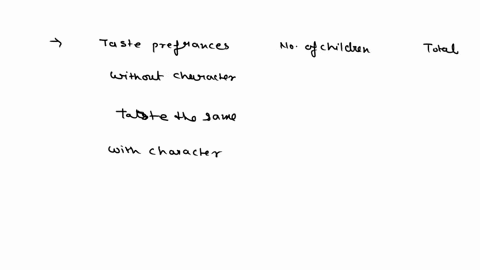 → Taste prefrances No. of children Total
without character
Taste the same
with character